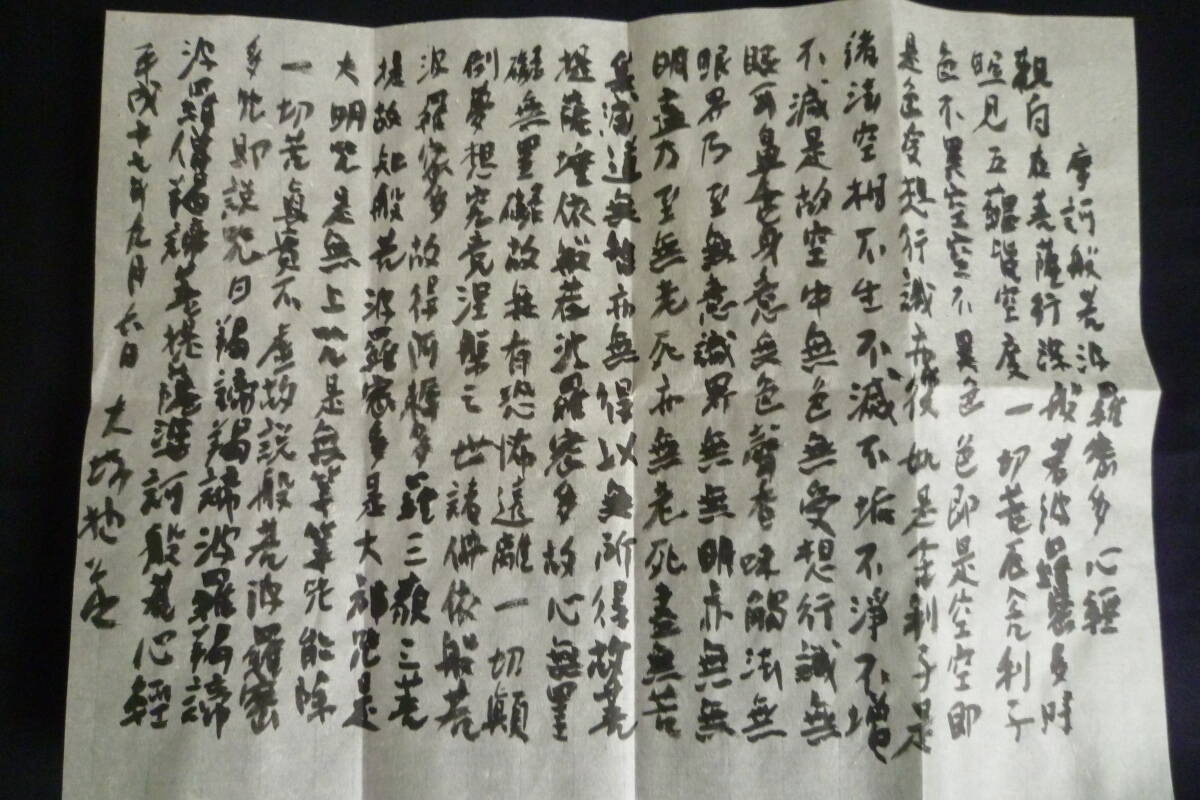 摩訶般若波羅蜜多心經
観自在菩薩行深般若波羅蜜多時
照見五蘊皆空度一切苦厄舎利子
色不異空空不異色色即是空空即
是色受想行識亦復如是舎利子是
諸法空相不生不滅不垢不淨不増
不減是故空中無色無受想行識無
眼耳鼻舌身意無色聲香味觸法無
眼界乃至無意識界無無明亦無無
明盡乃至無老死亦無老死盡無苦
集滅道無智亦無得以無所得故菩
提薩埵依般若波羅蜜多故心無罣
礙無罣礙故無有恐怖遠離一切顛
倒夢想究竟涅槃三世諸佛依般若
波羅蜜多故得阿耨多羅三藐三菩
提故知般若波羅蜜多是大神咒是
大明咒是無上咒是無等等咒能除
一切苦真實不虚故説般若波羅蜜
多咒即説咒曰羯諦羯諦波羅羯諦
波羅僧羯諦菩提薩婆訶般若心經
平成十七年九月六日 大